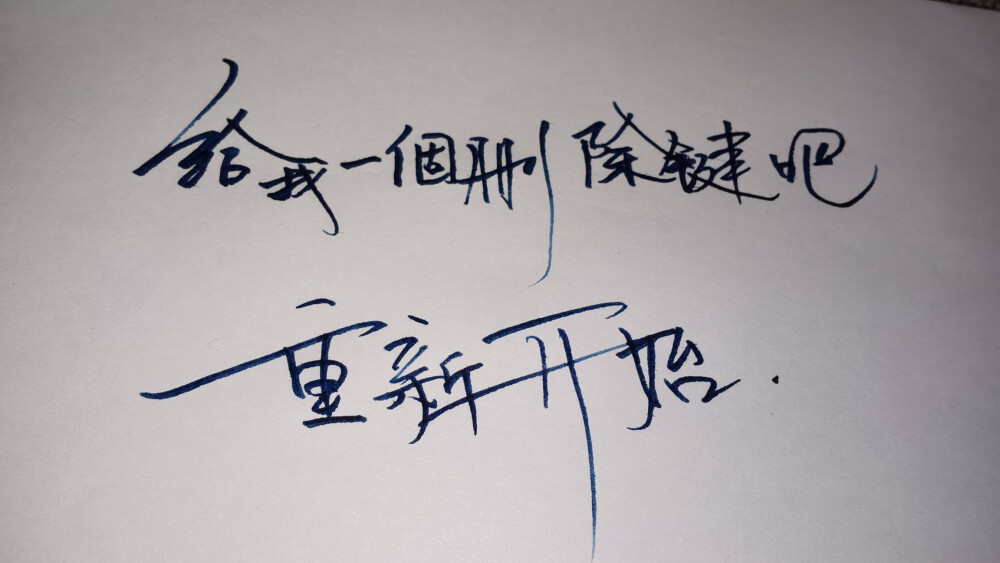 给我一個删除键吧
重新开始.